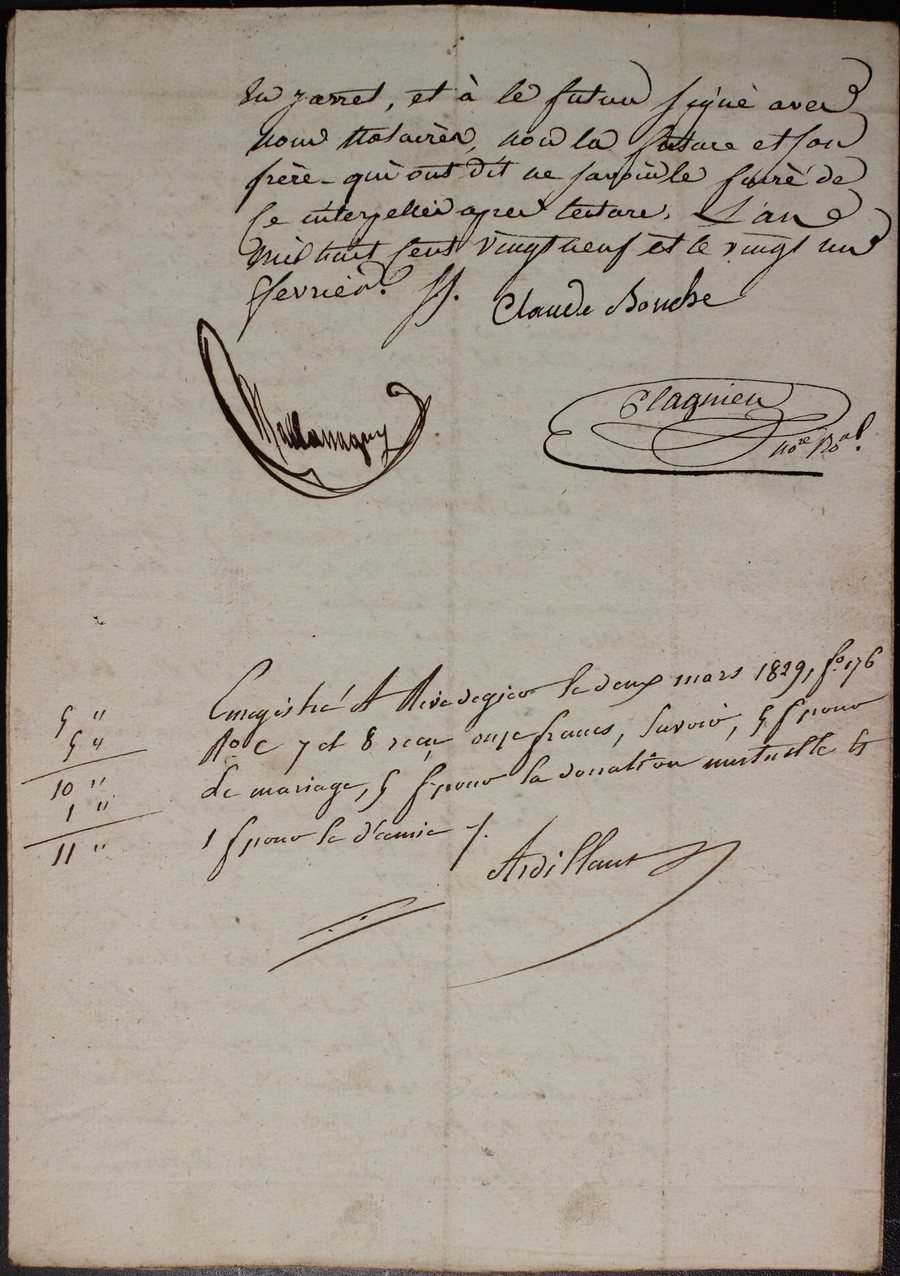 du jarret, et à le futur signé avec
nous Notaires, non la future et son
frère qui ont dit ne savoir le faire de
ce interpellés apres lecture. L'an
mil huit cent vingt neuf et le vingt un
fevrier.
Claude Bonche
Plagnieu
nore Roal.
Enregistré A Rivedegier le deux mars 1829, fo 176
Ro C 7 et 8 reçu onze francs, Savoir, 5 f pour
5 "
5 "
le mariage, 5 f pour la donation mutuelle et
10 "
1 "
1 f pour le d'ecime
11 "
Ardillaut